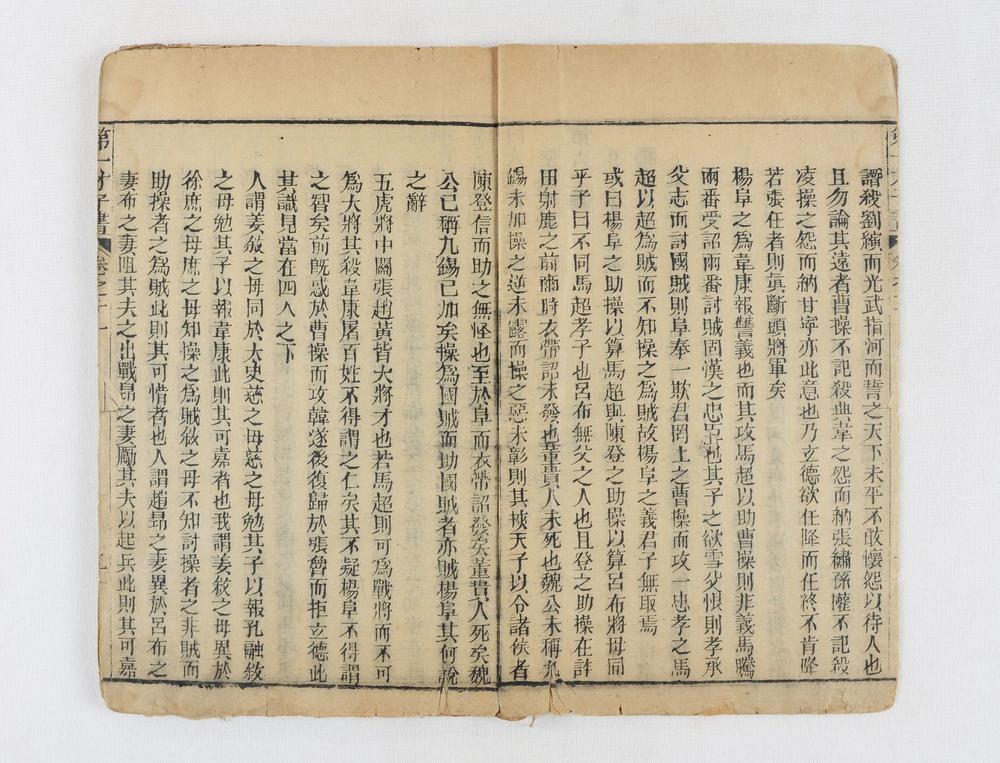 譖殺劉縯而光武指河而誓之天下未平不敢懷怨以待人也
且勿論其遠者曹操不記殺典韋之怨而納張繡孫權不記殺
凌操之怨而納甘寧亦此意也乃玄德欲任降而任終不肯降
若張任者則眞斷頭將軍矣
楊阜之爲韋康報讐義也而其攻馬超以助曹操則非義馬騰
兩番受詔兩番討賊固漢之忠臣也其子之欲雪父恨則孝承
父志而討國賊則阜奉一欺君罔上之曹操而攻一忠孝之馬
超以超爲賊而不知操之爲賊故楊阜之義君子無取焉
或曰楊阜之助操以算馬超與陳登之助操以算呂布將毋同
乎子曰不同馬超孝子也呂布無父之人也且登之助操在許
田射鹿之前爾時衣帶詔未發也董貴人未死也魏公未稱九
錫未加操之逆未露而操之惡未彰則其挾天子以令諸侯者
陳登信而助之無怪也至於阜而衣帶詔發矣董貴人死矣魏
公已稱九錫已加矣操爲國賊而助國賊者亦賊楊阜其何說
之辭
五虎將中關張趙黃皆大將才也若馬超則可爲戰將而不可
爲大將其殺韋康屠百姓不得謂之仁矣其不疑楊阜不得謂
之智矣前旣惑於曹操而攻韓遂後復歸於張魯而拒玄德此
其識見當在四人之下
人謂姜敘之母同於太史慈之母慈之母勉其子以報孔融敘
之母勉其子以報韋康此則其可嘉者也我謂姜敘之母異於
徐庶之母庶之母知操之爲賊敘之母不知討操者之非賊而
助操者之爲賊此則其可惜者也人謂趙昻之妻異於呂布之
妻布之妻阻其夫之出戰昻之妻勵其夫以起兵此則其可嘉
第一才子書
卷之十一